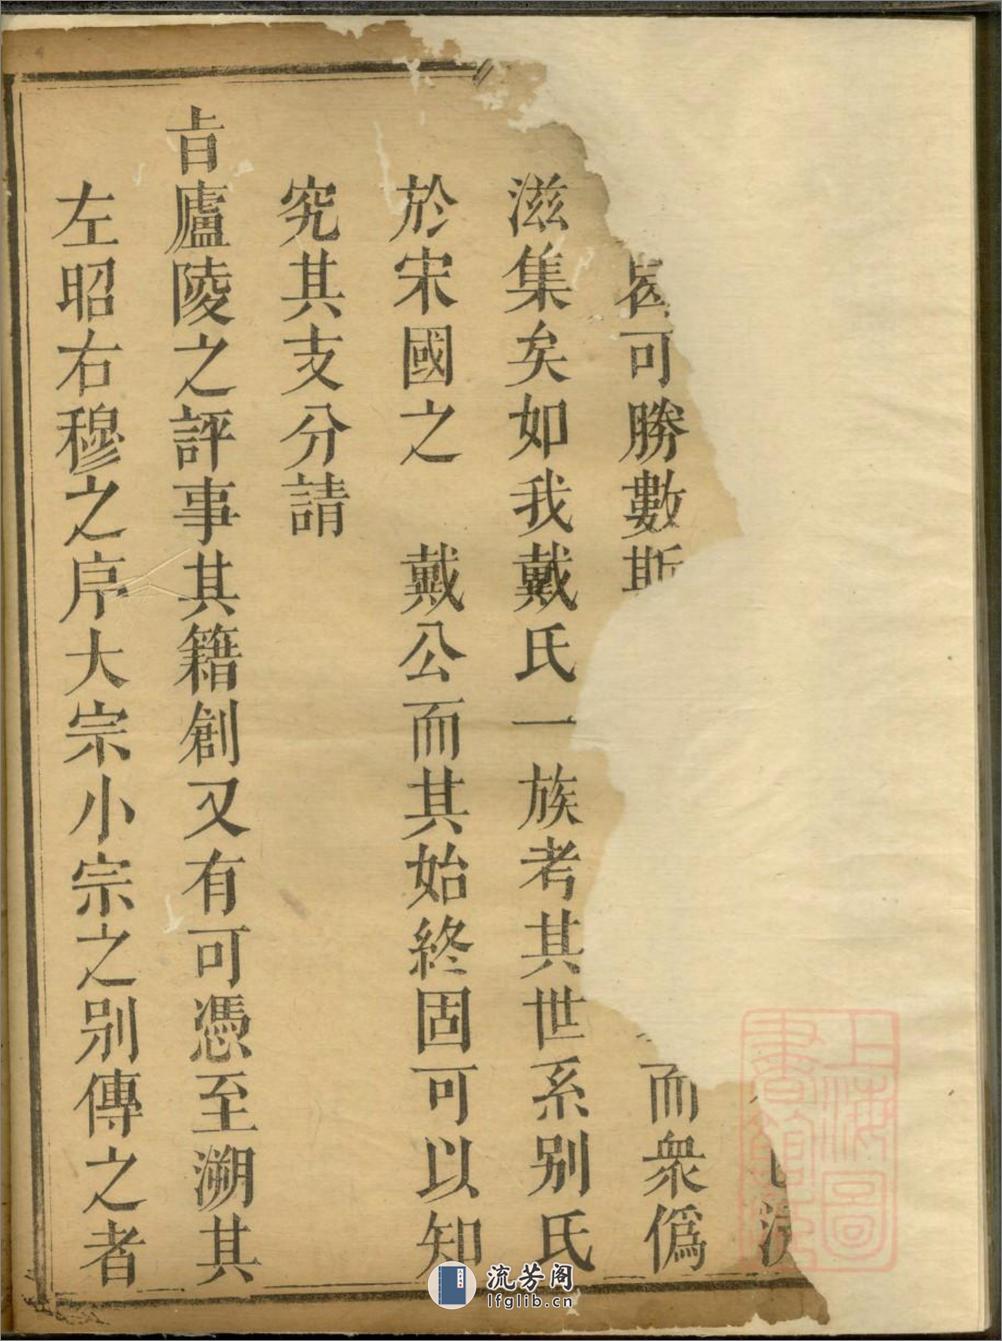 可勝數斯 而衆僞
滋集矣如我戴氏一族考其世系别氏
於宋國之 戴公而其始終固可以知
究其支分請
㫖廬陵之評事其籍創又有可憑至溯其
左昭右穆之序大宗小宗之别傳之者
上海圖書館藏
流芳阁
lfglib.cn